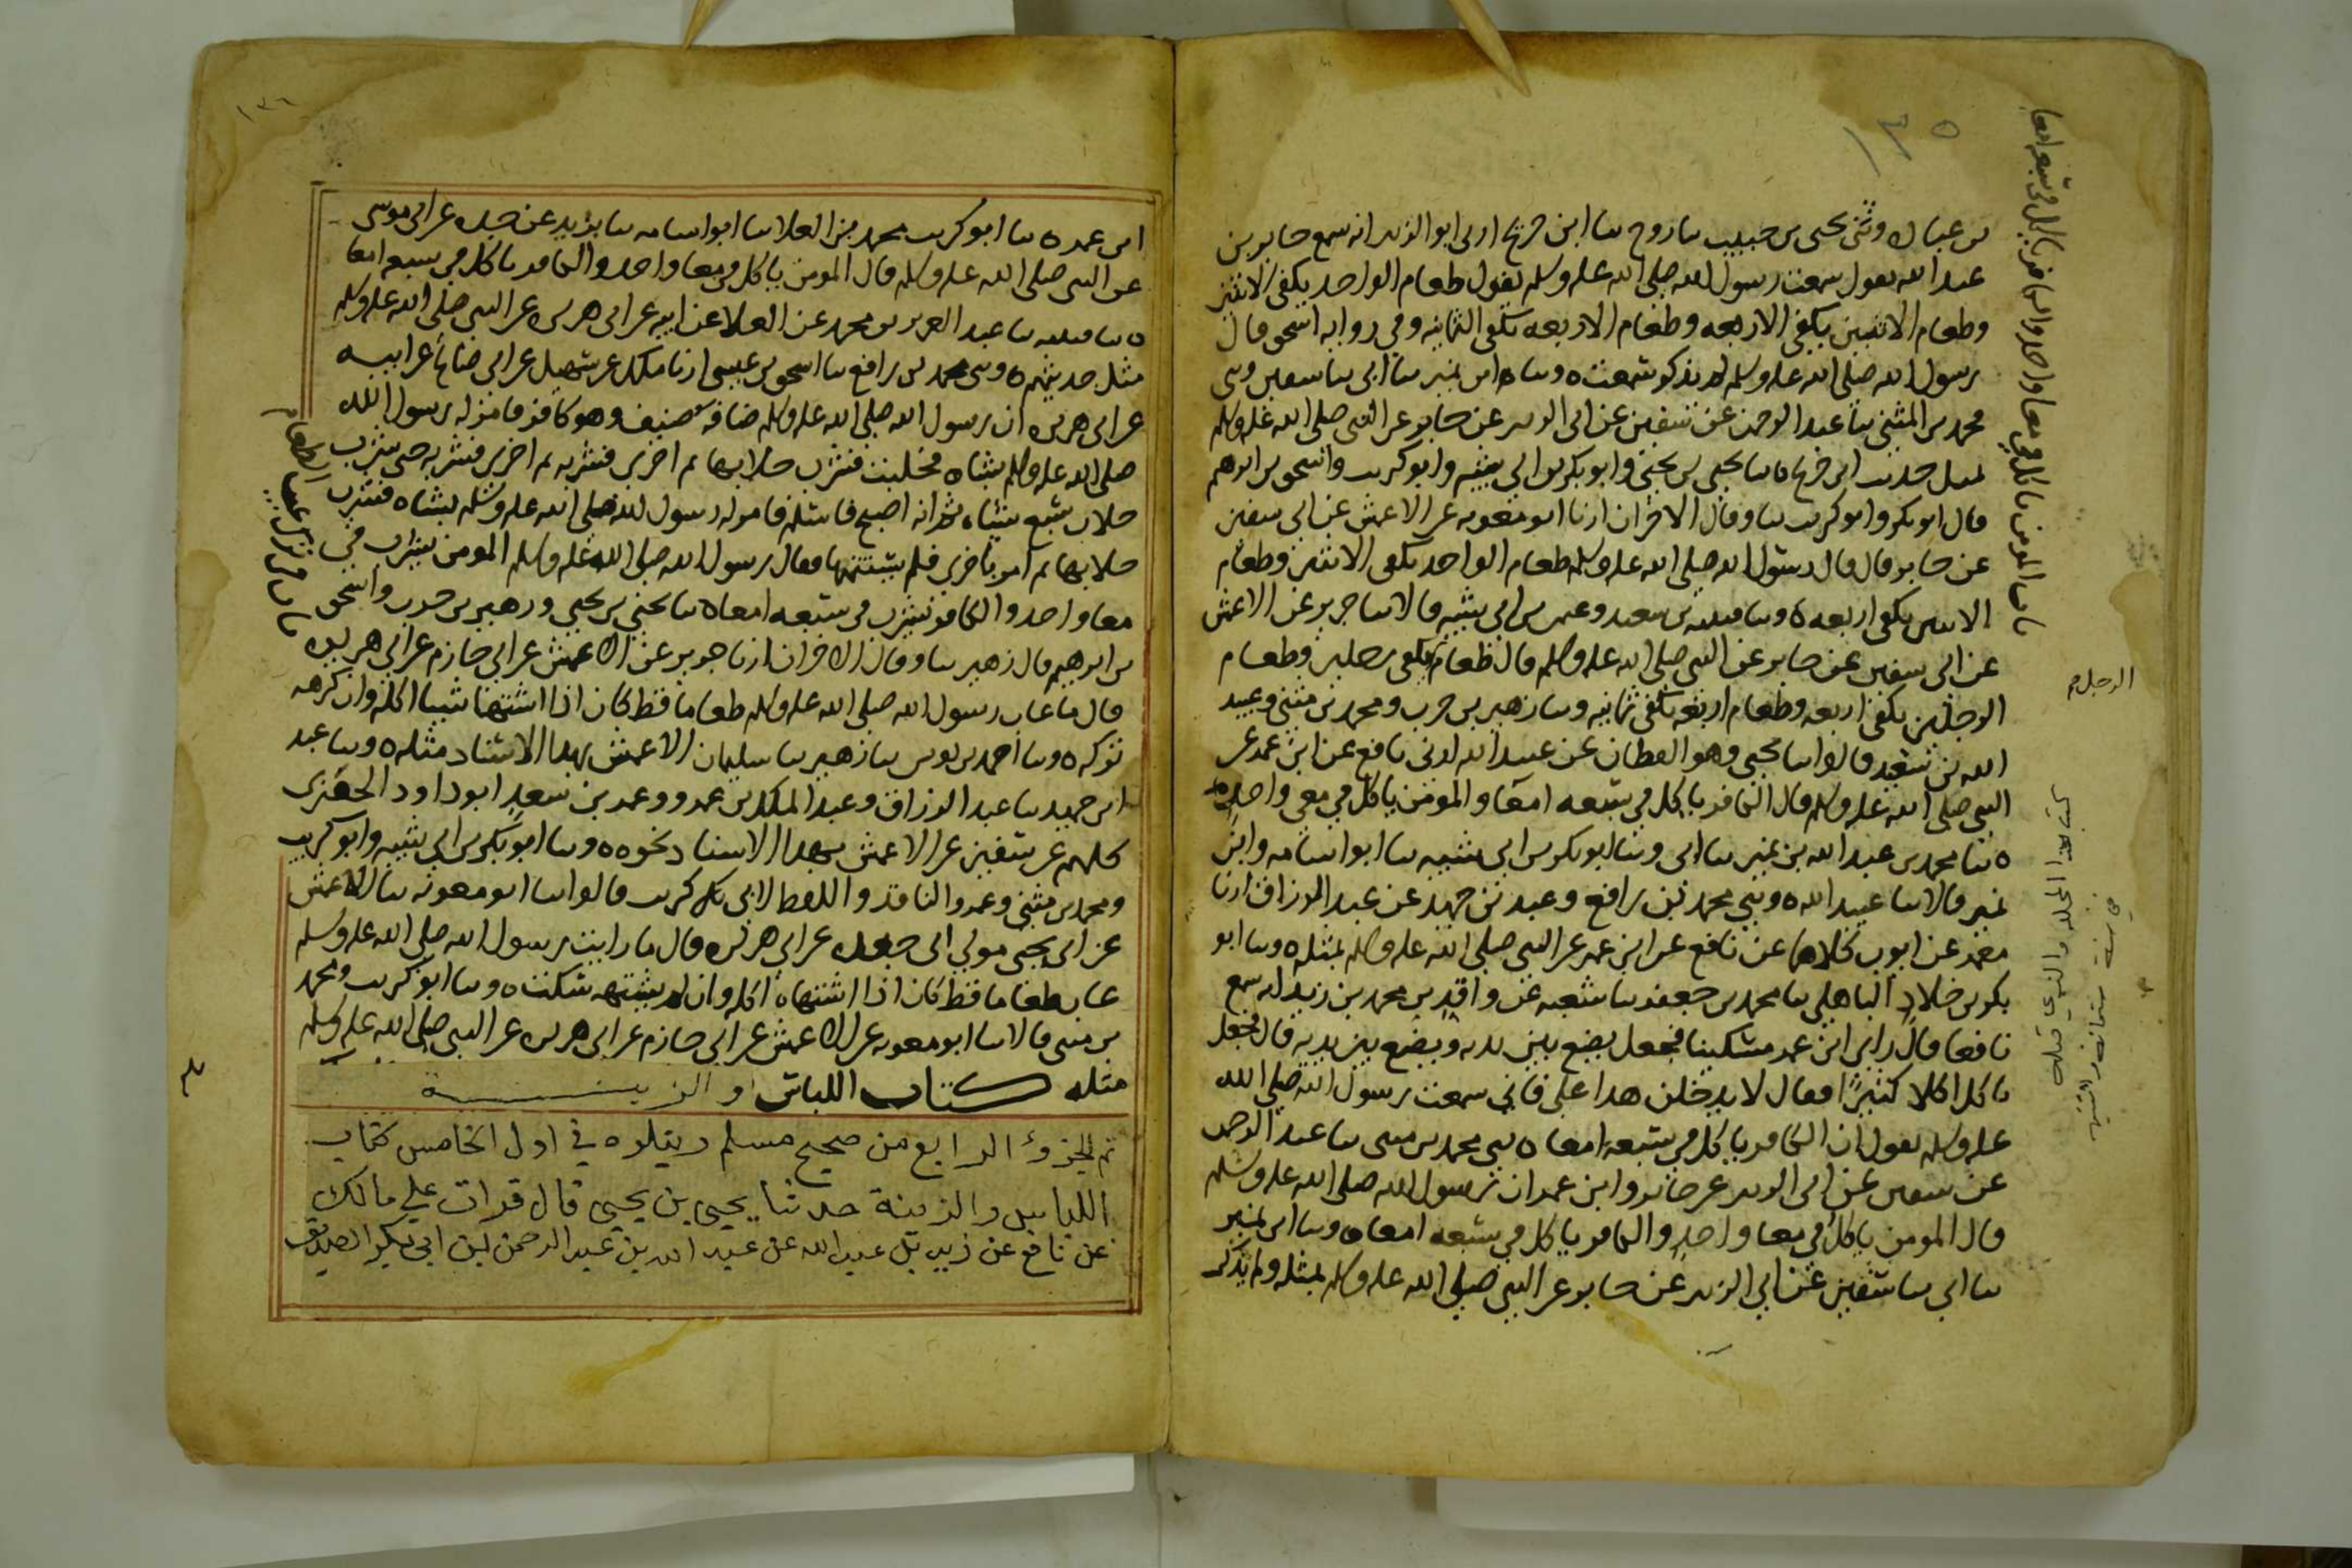 ١٣٥
باب المومن ياكل في معا واحد والكافر ياكل في سبعه امعا
بن عباده وثنى يحيى بن حبيب نا روح نا ابن جريج ارنى ابو الزبير انه سمع جابر بن
عبد الله يقول سمعت رسول الله صلى الله عليه وسلم يقول طعام الواحد يكفى الاثنين
وطعام الاثنين يكفى الاربعه وطعام الاربعه يكفى الثمانيه وفي روايه اسحق قال
رسول الله صلى الله عليه وسلم لم يذكر سمعت ه ونا ابن نمير نا ابى نا سفين وثنى
محمد بن المثنى نا عبد الرحمن عن سفين عن ابى الزبير عن جابر عن النبى صلى الله عليه وسلم
بمثل حديث ابن جريج ه نا يحيى بن يحيى وابو بكر بن ابي شيبه وابو كريب واسحق بن ابرهيم
قال ابو بكر وابو كريب نا وقال الاخران ارنا ابو معويه عن الاعمش عن ابى سفين
عن جابر قال قال رسول الله صلى الله عليه وسلم طعام الواحد يكفى الاثنين وطعام
الاثنين يكفى اربعه ه ونا قتيبه بن سعيد وعثمن بن ابي شيبه قالا نا جرير عن الاعمش
عن ابى سفين عن جابر عن النبى صلى الله عليه وسلم قال طعام يكفى رجلين وطعام
الرجل صح
الرجلين يكفى اربعه وطعام اربعه يكفى ثمانيه ونا زهير بن حرب ومحمد بن مثنى وعبيد
الله بن سعيد قالوا نا يحيى وهو القطان عن عبيد الله ارنى نافع عن ابن عمر عن
النبى صلى الله عليه وسلم قال الكافر ياكل في سبعه امعا والمومن ياكل في معى واحد ه
ه نا محمد بن عبد الله بن نمير نا ابى ونا ابو بكر بن ابى شيبه نا ابو اسامه وابن
نمير قالا نا عبيد الله ه وثني محمد بن رافع وعبد بن حميد عن عبد الرزاق ارنا
معمر عن ايوب كلاهما عن نافع عن ابن عمر عن النبى صلى الله عليه وسلم بمثله ه ونا ابو
بكر بن خلاد الباهلى نا محمد بن جعفر نا شعبه عن واقد بن محمد بن زيد انه سمع
نافعا قال راى ابن عمر مسكينا فجعل يضع بين يديه ويضع بين يديه قال فجعل
ياكل اكلا كثيرا فقال لا يدخلن هذا على فاني سمعت رسول الله صلى الله
عليه وسلم يقول ان الكافر ياكل في سبعه امعا ه ثنى محمد بن مثنى نا عبد الرحمن
عن سفين عن ابى الزبير عن جابر وابن عمر ان رسول الله صلى الله عليه وسلم
قال المومن ياكل في معا واحد والكافر ياكل في سبعه امعا ه ونا ابن نمير
نا ابي نا سفين عن ابي الزبير عن جابر عن النبى صلى الله عليه وسلم بمثله ولم يذكر
١٣٦
ابن عمر ه نا ابو كريب محمد بن العلا نا ابو اسامه نا بريد عن جده عن ابى موسى
عن النبى صلى الله عليه وسلم قال المومن ياكل في معا واحد والكافر ياكل في سبعه امعا
ه نا قتيبه نا عبد العزيز بن محمد عن العلا عن ابيه عن ابى هريره عن النبى صلى الله عليه وسلم
مثل حديثهم ه وثنى محمد بن رافع نا اسحق بن عيسى ارنا ملك عن سهيل عن ابى صالح عن ابيه
عن ابى هريره ان رسول الله صلى الله عليه وسلم ضافه ضيف وهو كافر فامر له رسول الله
صلى الله عليه وسلم بشاه فحلبت فشرب حلابها ثم اخرى فشربه ثم اخرى فشربه حتى شرب
حلاب سبع شياه ثم انه اصبح فاسلم فامر له رسول الله صلى الله عليه وسلم بشاه فشرب
حلابها ثم امر باخرى فلم يستتمها فقال رسول الله صلى الله عليه وسلم المومن يشرب في
معا واحد والكافر يشرب في سبعه امعا ه نا يحيى بن يحيى وزهير بن حرب واسحق
باب في ترك عيب الطعام
بن ابرهيم قال زهير نا وقال الاخران ارنا جرير عن الاعمش عن ابى حازم عن ابى هريره
قال ما عاب رسول الله صلى الله عليه وسلم طعاما قط كان اذا اشتهى شيا اكله وان كرهه
تركه ه ونا احمد بن يونس نا زهير نا سليمان الاعمش بهذا الاسناد مثله ه ونا عبد
ابن حميد نا عبد الرزاق وعبد الملك بن عمرو وعمر بن سعد ابو داود الحفرى
كلهم عن سفين عن الاعمش بهذا الاسناد نحوه ه ونا ابو بكر بن ابي شيبه وابو كريب
ومحمد بن مثنى وعمرو الناقد واللفظ لابى كريب قالوا نا ابو معويه نا الاعمش
عن ابى يحيى مولى ال جعده عن ابى هريره قال ما رايت رسول الله صلى الله عليه وسلم
عاب طعاما قط كان اذا اشتهاه اكله وان لم يشتهه سكت ه ونا ابو كريب ومحمد
بن مثنى قالا نا ابو معويه عن الاعمش عن ابى حازم عن ابى هريره عن النبى صلى الله عليه وسلم
مثله كتاب اللباس والزينة
تم الجزؤ الرابع من صحيح مسلم ويتلوه في اول الخامس كتاب
اللباس والزينة حدثنا يحيى بن يحيى قال قرات على مالك
عن نافع عن زيد بن عبد الله عن عبد الله بن عبد الرحمن بن ابي بكر الصديق